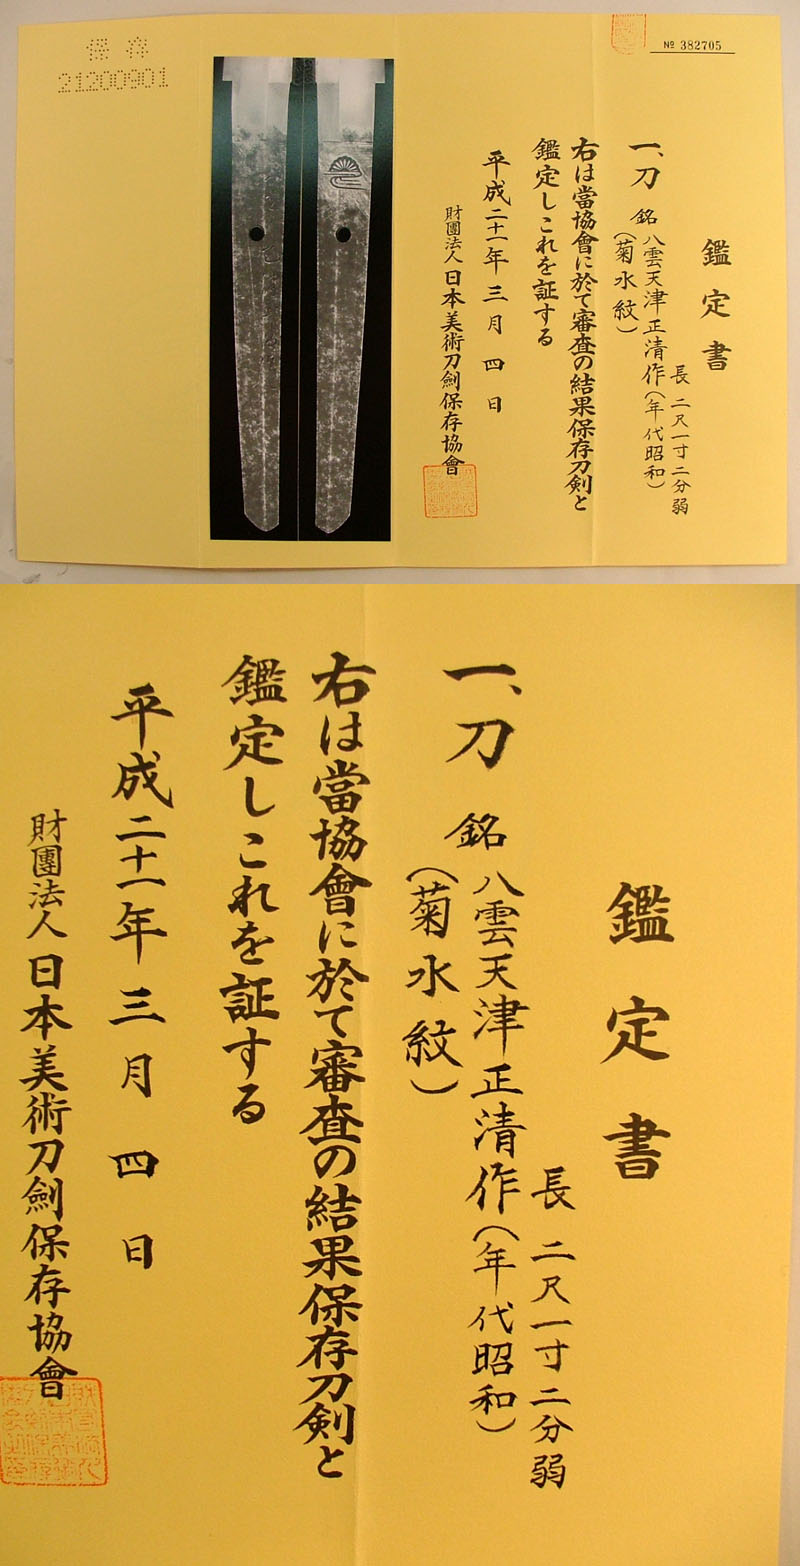 保存
21200901
№ 382705
鑑定書
長 二尺一寸二分弱
一、刀 銘 八雲天津正清作(年代昭和)
(菊水紋)
右は當協會に於て審査の結果保存刀剣と
鑑定しこれを証する
平成二十一年三月四日
財團法人日本美術刀劍保存協會
鑑定書
長 二尺一寸二分弱
一、刀 銘 八雲天津正清作(年代昭和)
(菊水紋)
右は當協會に於て審査の結果保存刀剣と
鑑定しこれを証する
平成二十一年三月四日
財團法人日本美術刀劍保存協會